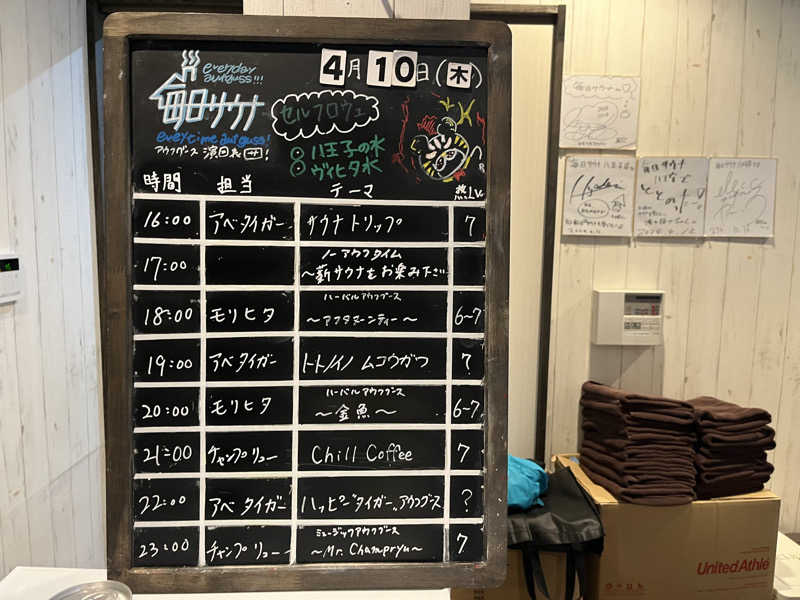 everyday
aufguss!!!
毎日サウナ
everytime aufguss!
4月10日(木)
セルフロウリュ
◎八王子の水
◎ヴィヒタ水
時間 担当 テーマ 熱Lv.
16:00 アベタイガー サウナトリップ 7
17:00 ノーアウフタイム
〜薪サウナをお楽み下さい
18:00 モリヒタ ハーバルアウフグース
〜アフタヌーンティー〜 6~7
19:00 アベタイガー トトノイノムコウガワ 7
20:00 モリヒタ ハーバルアウフグース
〜金魚〜 6~7
21:00 チャンプリュー Chill Coffee 7
22:00 アベタイガー ハッピー"タイガー"アウフグース ?
23:00 チャンプリュー ミュージックアウフグース
〜Mr. Champryu〜 7
United Athle